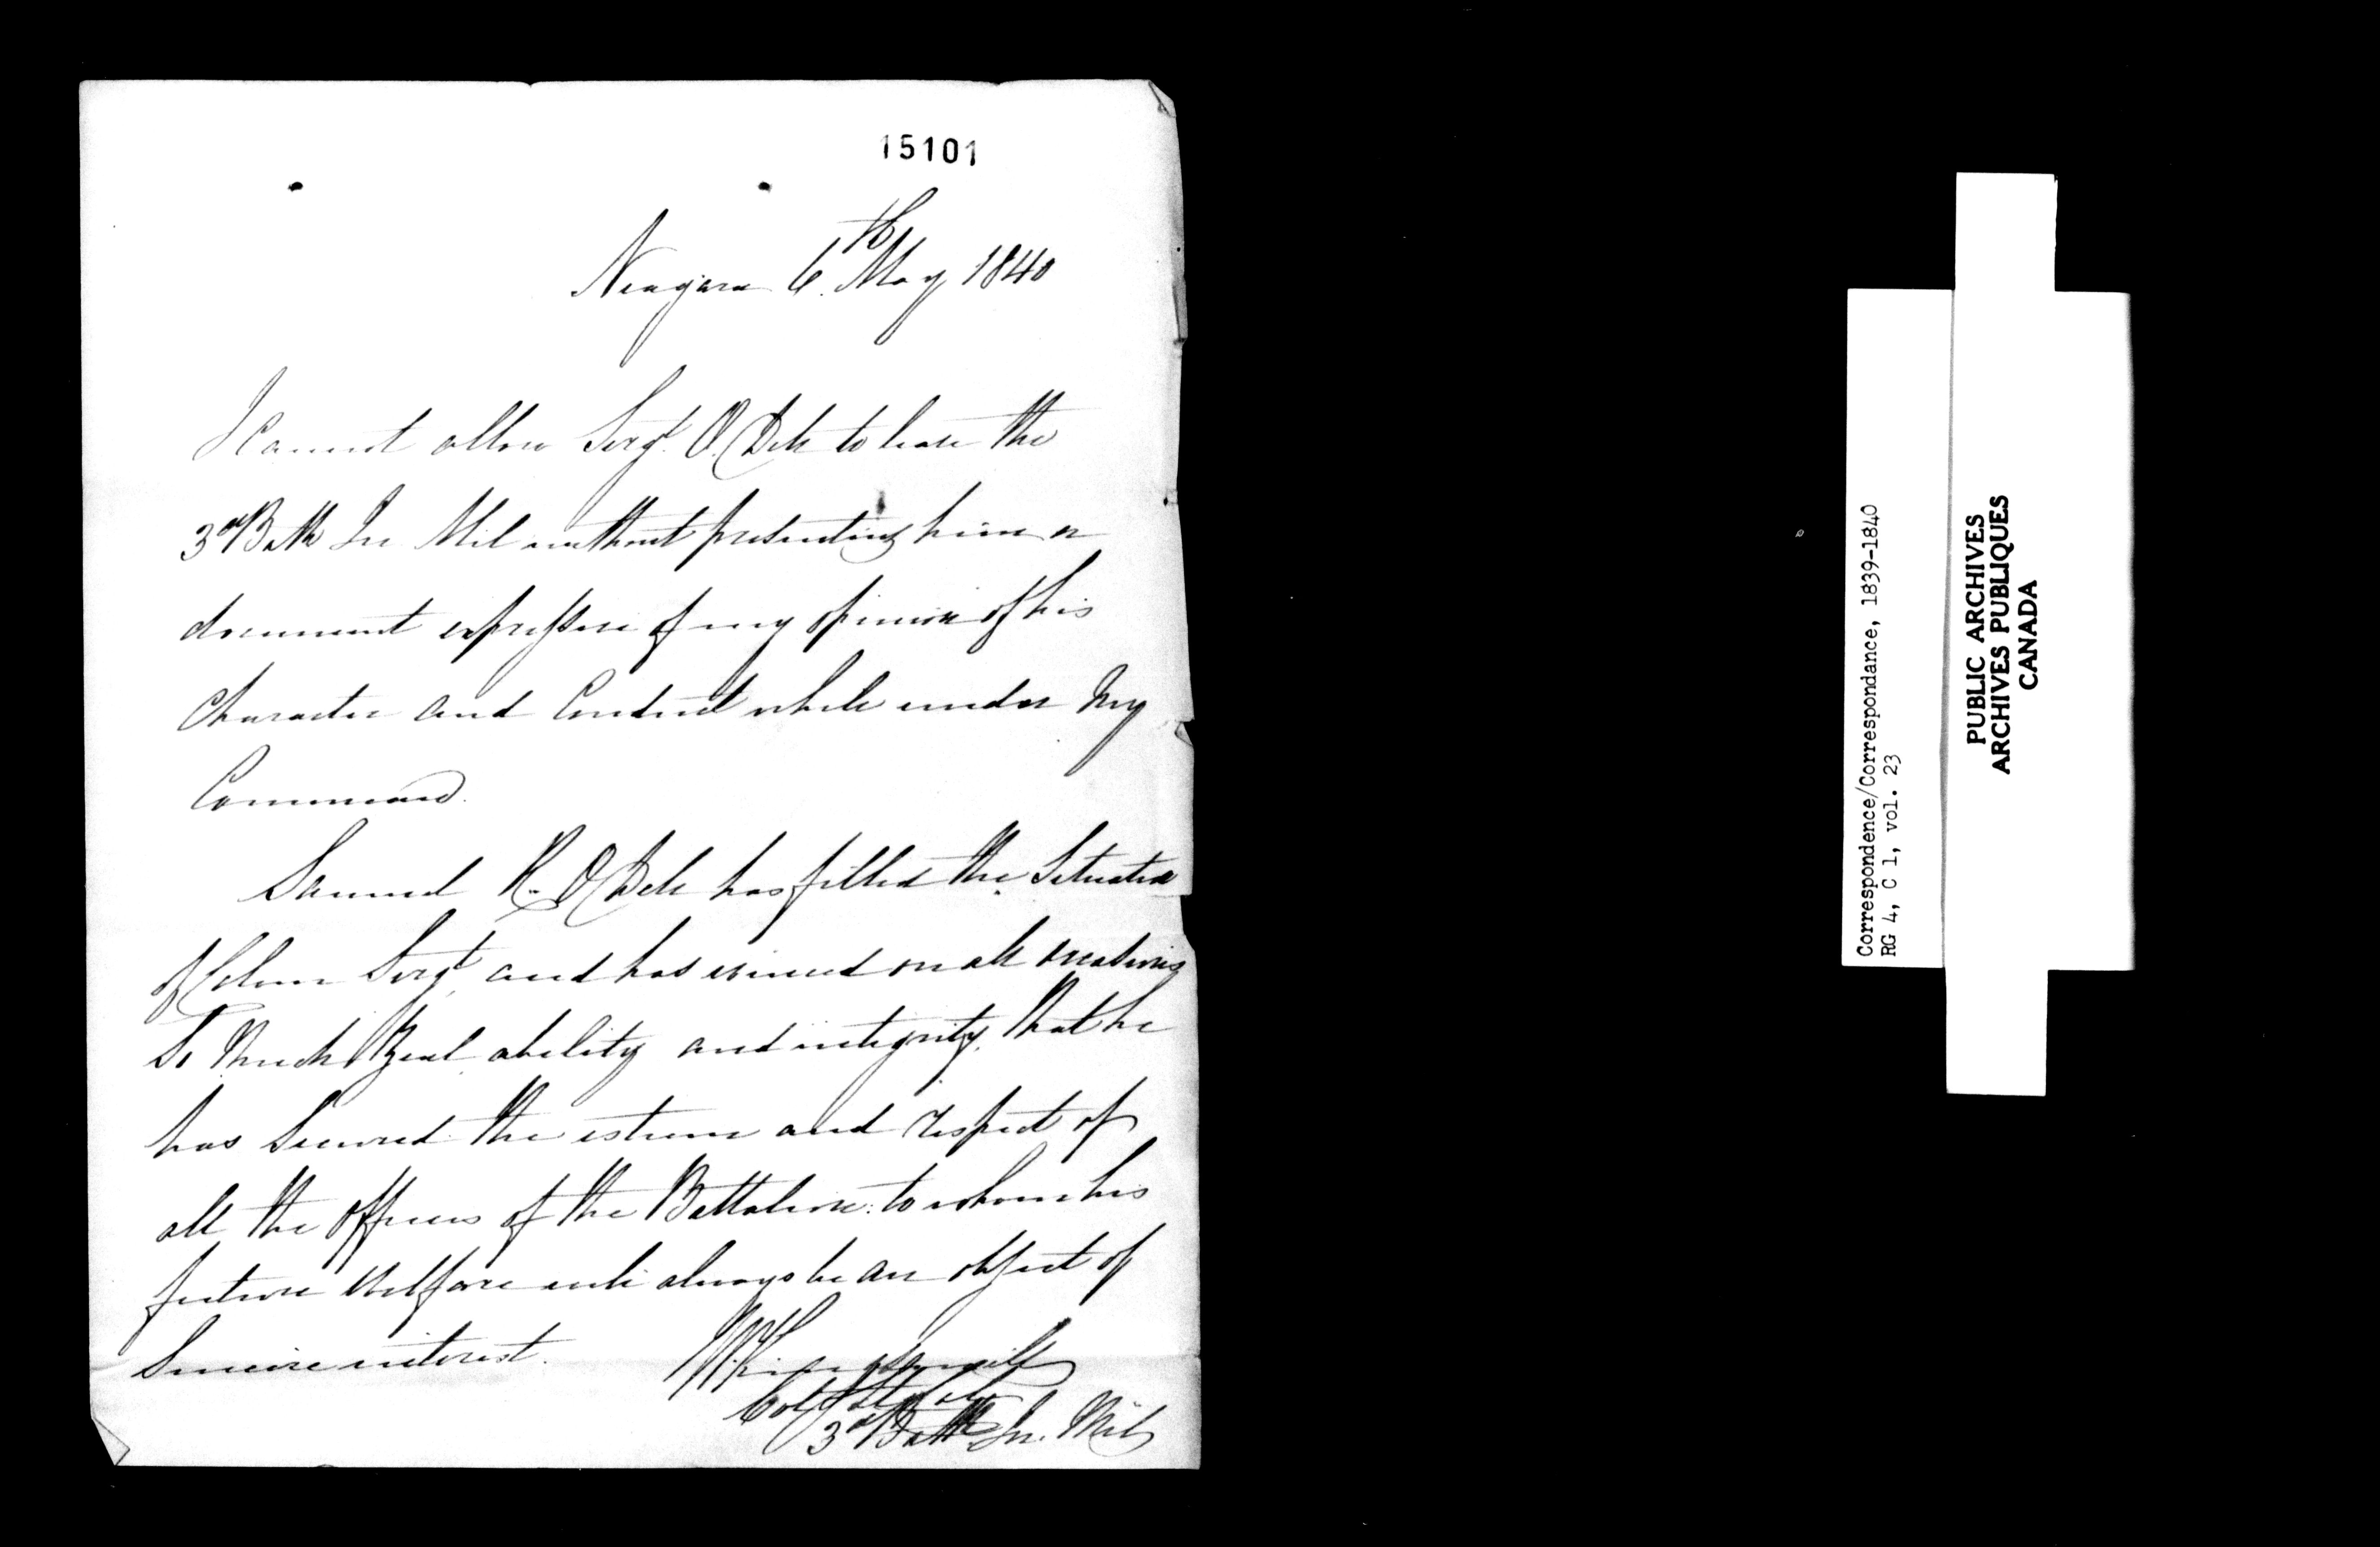 15101
Niagara 6th May 1840
I Cannot allow Sergt. O.Dell to leave the
3rd Battn In Mil without presenting him a
document expressive of my opinion of his
Character and Conduct while under My
Command.
Samuel K. O Dell has filled the Situation
of Colour Sergt and has evinced on all occasions
So Much Zeal ability and integrity, that he
has Secured the esteem and respect of
all the officers of the Battalion: to whom his
future Welfare will always be an object of
Sincere interest.
Col
3rd Battn In. Mil
Correspondence/Correspondance, 1839-1840
RG 4, C 1, vol. 23
PUBLIC ARCHIVES
ARCHIVES PUBLIQUES
CANADA